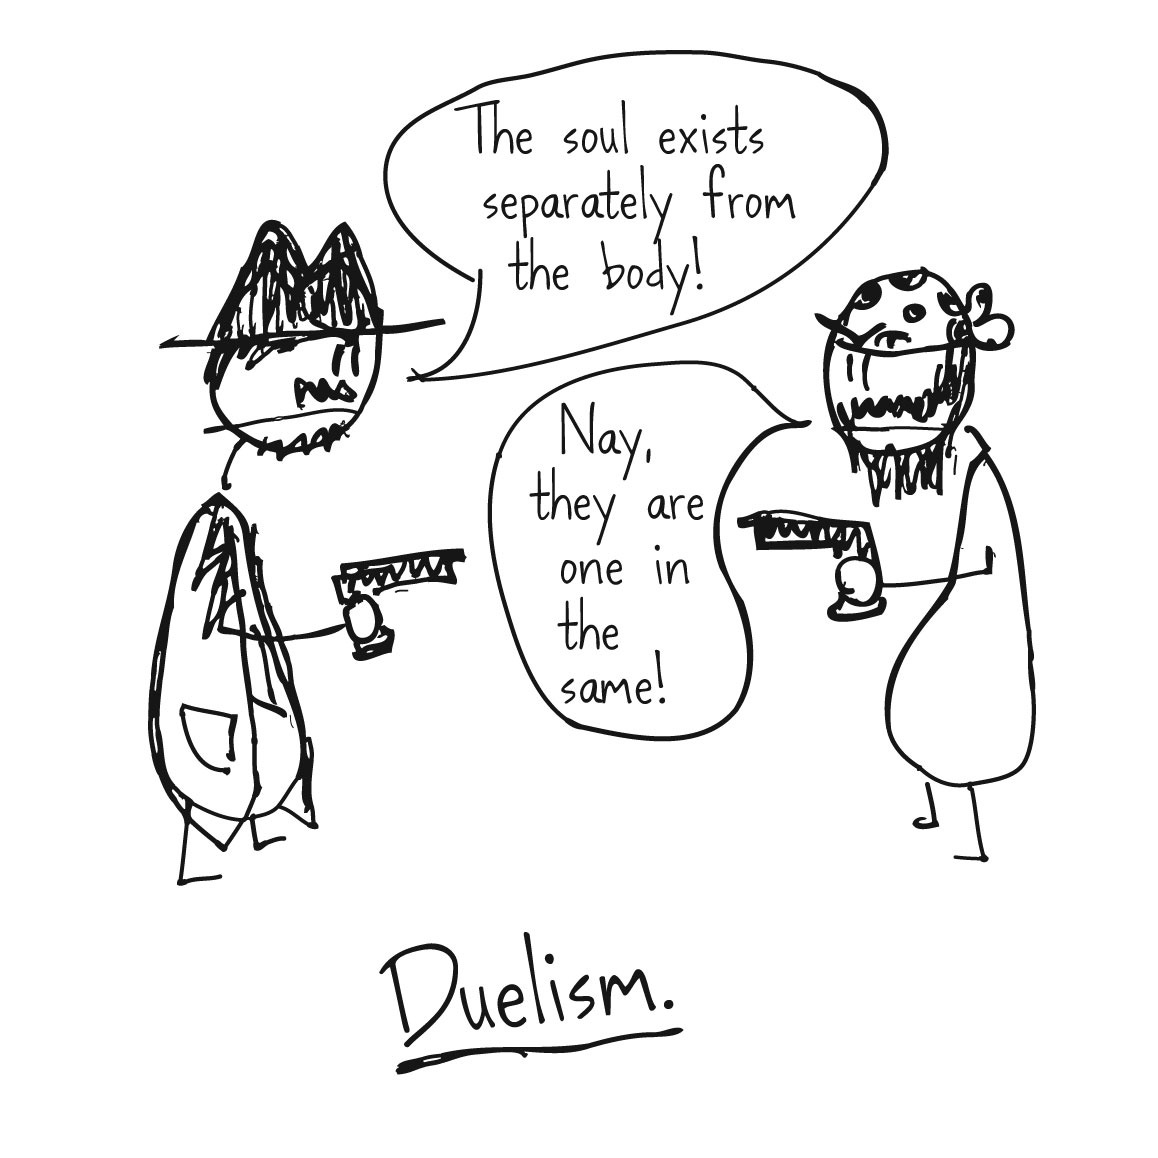 The soul exists
separately from
the body!
Nay,
they are
one in
the
same!
Duelism.